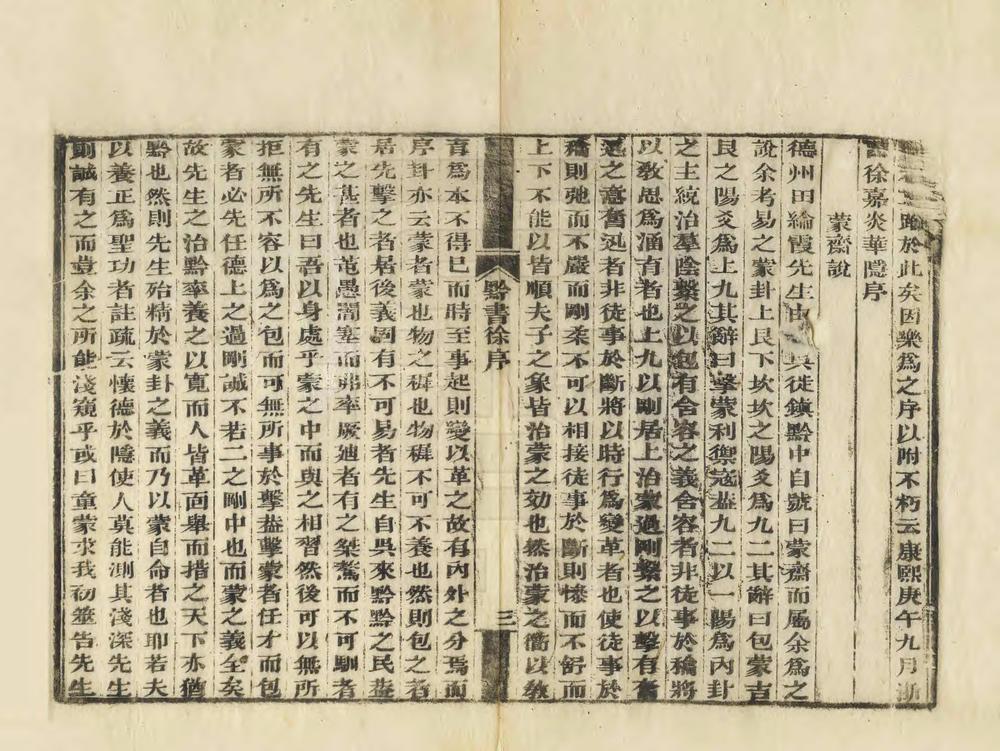 於此矣因樂爲之序以附不朽云康熙庚午九月浙
徐嘉炎華隱序
蒙齋說
德州田綸霞先生由吳徙鎮黔中自號曰蒙齋而属余爲之
說余考易之蒙卦上艮下坎坎之陽爻爲九二其辭曰包蒙吉
艮之陽爻爲上九其辭曰擊蒙利禦寇葢九二以一陽爲內卦
之主統治羣陰繫之以包有含容之義含容者非徒事於穉將
以敎思爲涵育者也上九以剛居上治蒙過剛繫之以擊有奮
迅之意奮迅者非徒事於斷將以時行爲變革者也使徒事於
穉則弛而不嚴而剛柔不可以相接徒事於斷則慘而不舒而
上下不能以皆順夫子之象皆治蒙之効也然治蒙之衜以敎
黔書徐序
三
育爲本不得已而時至事起則變以革之故有內外之分焉而
序卦亦云蒙者蒙也物之穉也物穉不可不養也然則包之者
居先擊之者居後義固有不可易者先生自吳來黔黔之民葢
蒙之甚者也芚愚闇塞而弗率厥廸者有之桀驁而不可馴者
有之先生曰吾以身處乎蒙之中而與之相習然後可以無所
拒無所不容以爲之包而可無所事於擊葢擊蒙者任才而包
蒙者必先任德上之過剛誠不若二之剛中也而蒙之義全矣
故先生之治黔率養之以寬而人皆革面舉而措之天下亦猶
黔也然則先生殆精於蒙卦之義而乃以蒙自命者也耶若夫
以養正爲聖功者註疏云懷德於隱使人莫能測其淺深先生
則誠有之而豈余之所能淺窺乎或曰童蒙求我初筮告先生